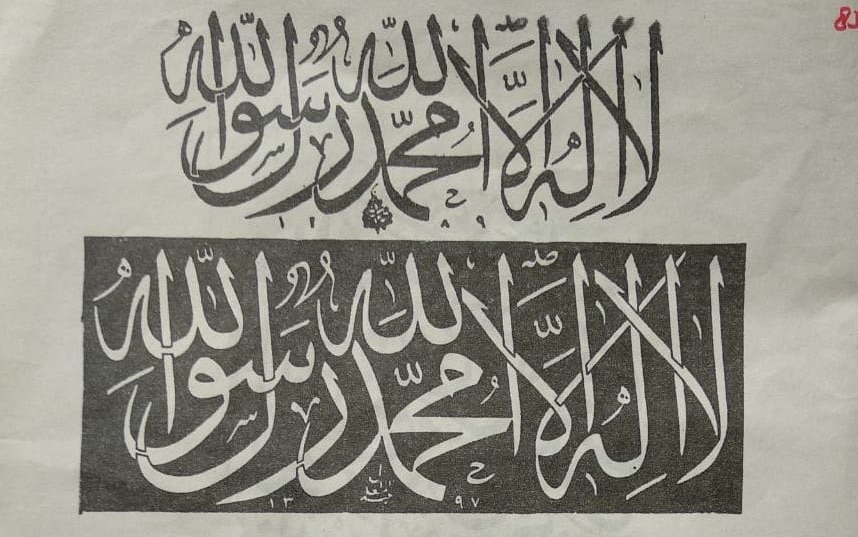 لا اله الا الله محمد رسول الله
١١٨٩
لا اله الا الله محمد رسول الله
١٣٩٧